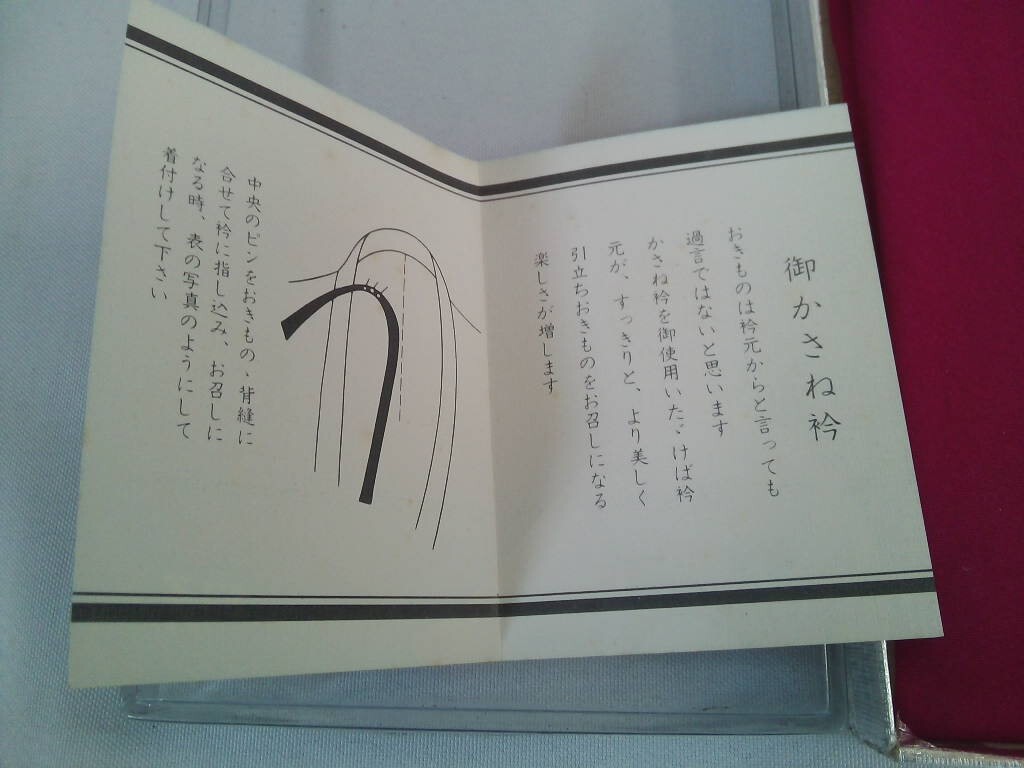 御かさね衿
おきものは衿元からと言っても
過言ではないと思います
かさね衿を御使用いたゞけば衿
元が、すっきりと、より美しく
引立ちおきものをお召しになる
楽しさが増します
中央のピンをおきもの、背縫に
合せて衿に指し込み、お召しに
なる時、表の写真のようにして
着付けして下さい